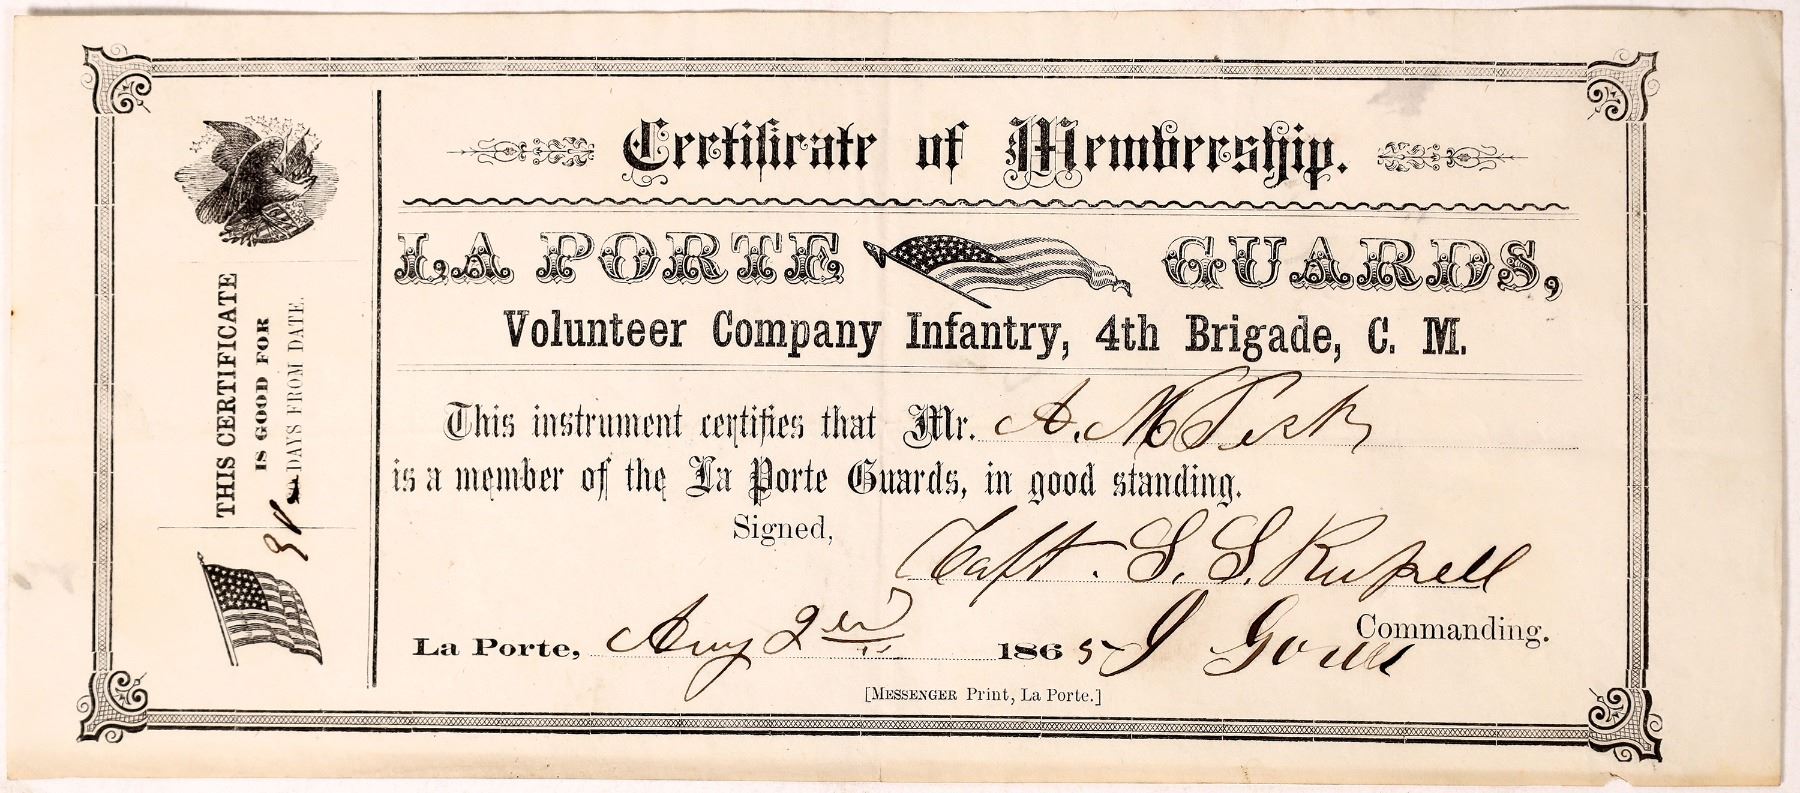 Certificate of Membership.
LA PORTE GUARDS,
Volunteer Company Infantry, 4th Brigade, C. M.
This instrument certifies that Mr. A. M
is a member of the La Porte Guards, in good standing.
Signed,
Capt. S. S. Russell
Commanding.
La Porte, Aug 2nd 1865
[MESSENGER Print, La Porte.]
THIS CERTIFICATE
IS GOOD FOR
DAYS FROM DATE.